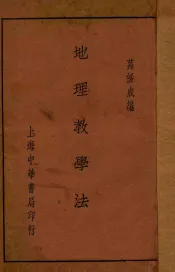 葛綏成編
地理教學法
上海中華書局印行